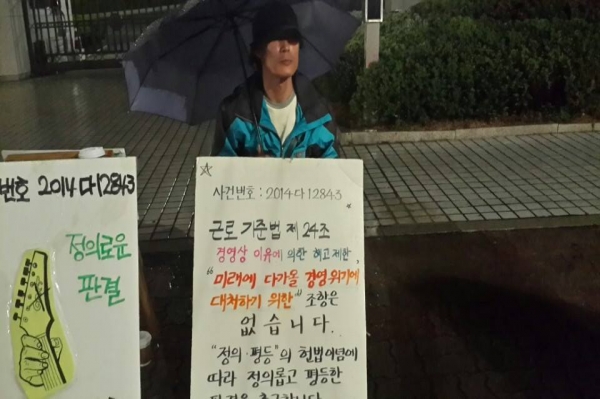 번호 2014다12843
정의로운
판결
사건번호 : 2014다12843
근로기준법 제24조
경영상 이유에 의한 해고제한,
"미래에 다가올 경영위기에
대처하기 위한" 조항은
없습니다.
"정의·평등"의 헌법이념에
따라 정의롭고 평등한